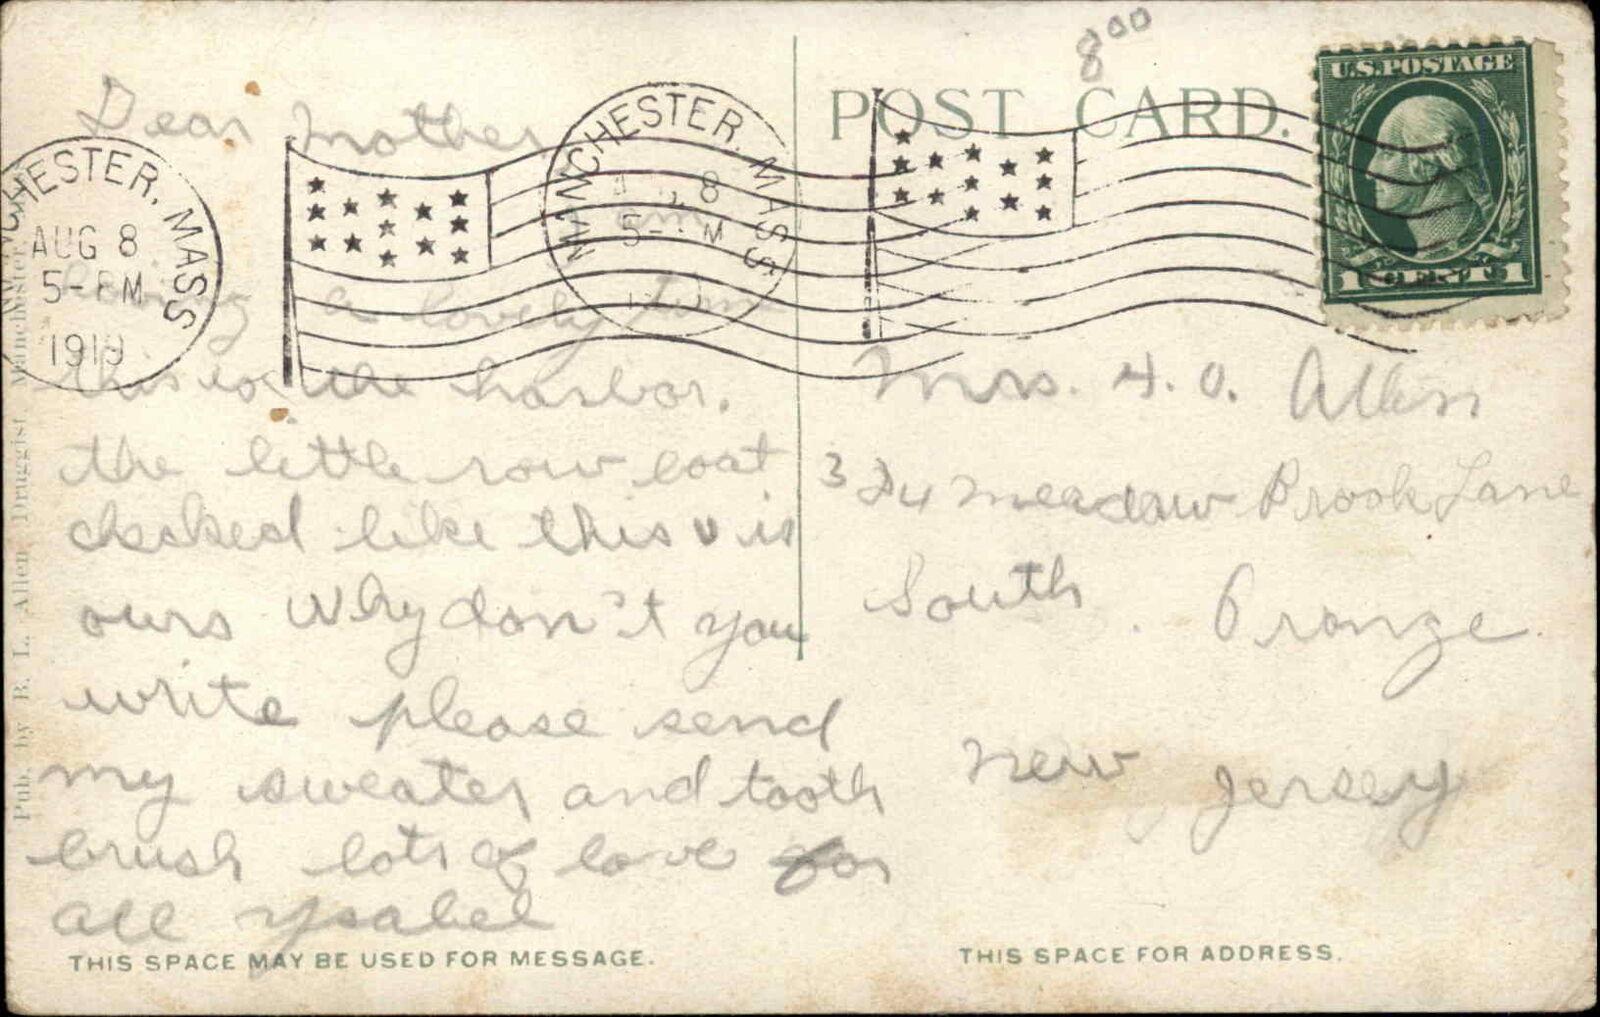 8.00
POST CARD.
U.S. POSTAGE
1 CENT 1
MANCHESTER, MASS
AUG 8
5-PM
1919
MANCHESTER, MASS
8
5- M
Dear Mother
am
having a lovely time
this is the harbor.
the little row boat
checked like this v is
ours Why don't you
write please send
my sweater and tooth
brush lots of love for
all Ysabel
Mrs. H. O. Allen
324 Meadow Brook Lane
South Orange
New Jersey
Pub. by B. L. Allen, Druggist, Manchester,
THIS SPACE MAY BE USED FOR MESSAGE.
THIS SPACE FOR ADDRESS.